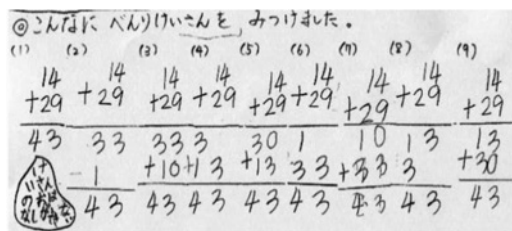 ◎こんなに べんりけいさんを みつけました.
(1) (2) (3) (4) (5) (6) (7) (8) (9)
14 14 14 14 14 14 14 14 14
+29 +29 +29 +29 +29 +29 +29 +29 +29
43 33 33 3 30 1 10 13 13
1 +10 +13 +13 33 +33 3 +30
43 43 43 43 43 43 43 43